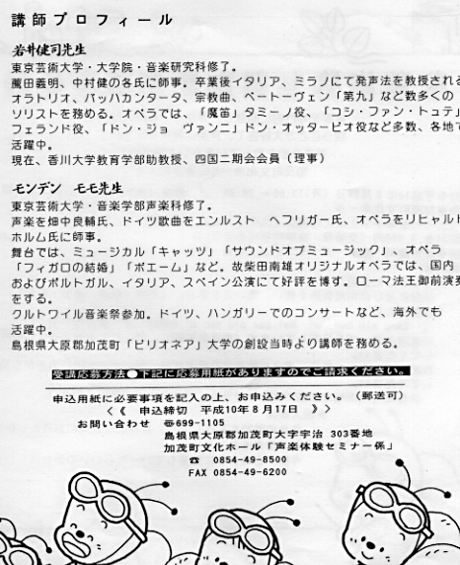 講師プロフィール
岩井健司先生
東京芸術大学・大学院・音楽研究科修了。
薗田義明、中村健の各氏に師事。卒業後イタリア、ミラノにて発声法を教授される
オラトリオ、バッハカンタータ、宗教曲、ベートーヴェン「第九」など数多くの
ソリストを務める。オペラでは、「魔笛」タミーノ役、「コシ・ファン・トュテ」
フェランド役、「ドン・ジョ ヴァンニ」ドン・オッタービオ役など多数、各地で
活躍中。
現在、香川大学教育学部助教授、四国二期会会員（理事）
モンデン モモ先生
東京芸術大学・音楽学部声楽科修了。
声楽を畑中良輔氏、ドイツ歌曲をエンルスト ヘフリガー氏、オペラをリヒャルト
ホルム氏に師事。
舞台では、ミュージカル「キャッツ」「サウンドオブミュージック」、オペラ
「フィガロの結婚」「ボエーム」など。故柴田南雄オリジナルオペラでは、国内
およびポルトガル、イタリア、スペイン公演にて好評を博す。ローマ法王御前演奏
をする。
クルトワイル音楽祭参加。ドイツ、ハンガリーでのコンサートなど、海外でも
活躍中。
島根県大原郡加茂町「ビリオネア」大学の創設当時より講師を務める。
受講応募方法●下記に応募用紙がありますのでご請求ください。
申込用紙に必要事項を記入の上、お申込みください。（郵送可）
＜《 申込締切 平成10年8月17日 》＞
お問い合わせ 〒699-1105
島根県大原郡加茂町大字宇治 303番地
加茂町文化ホール「声楽体験セミナー係」
☎ 0854-49-8500
FAX 0854-49-6200